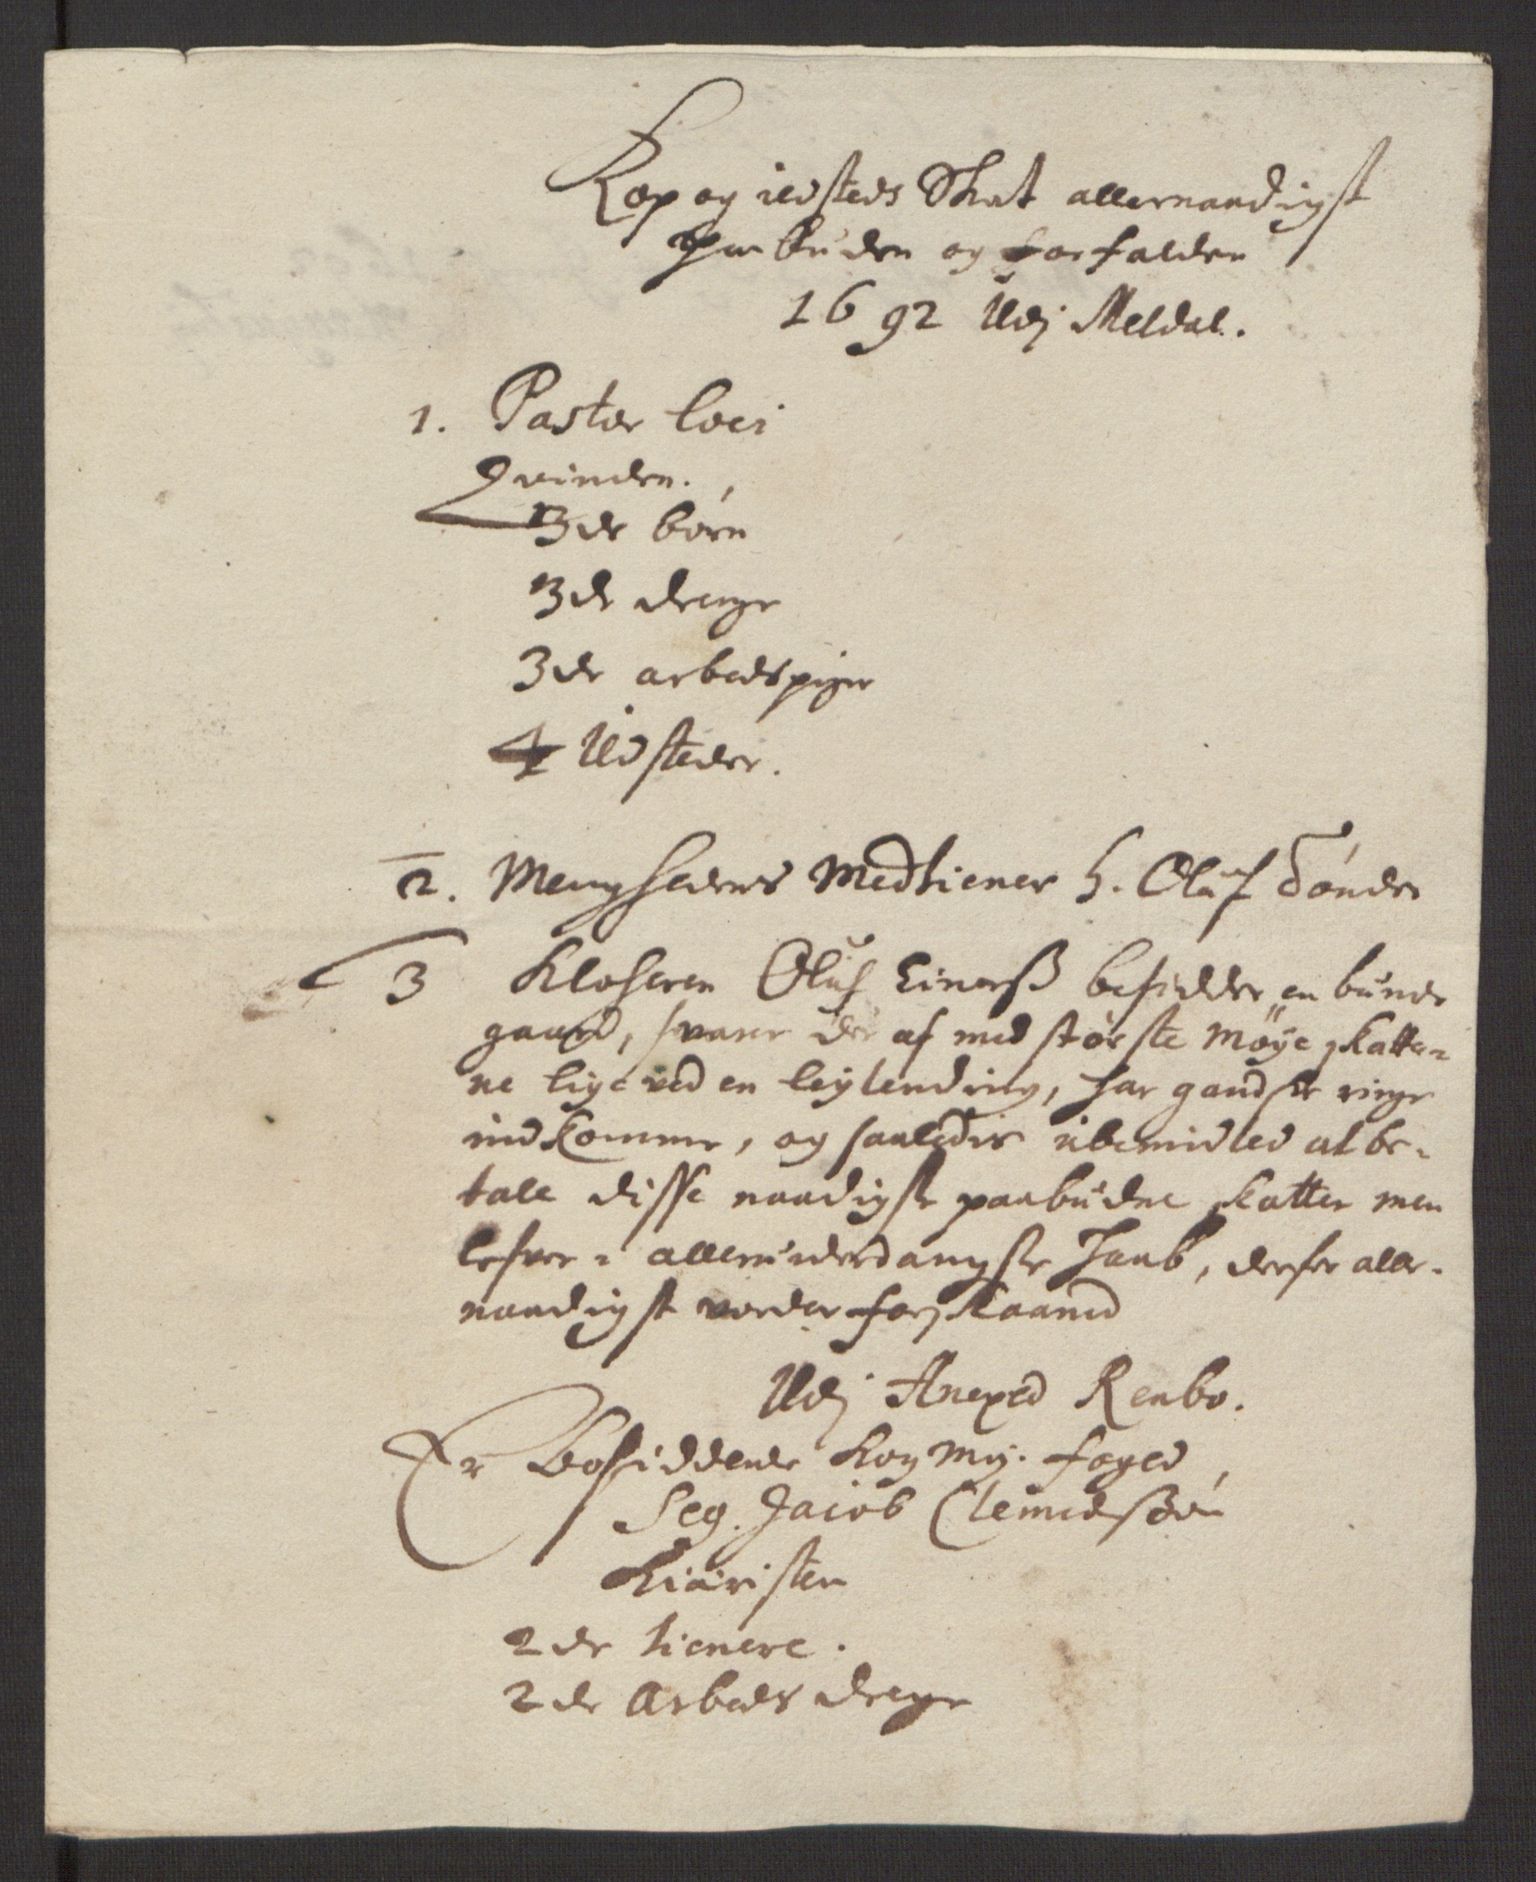 Kop og ildsteds Skat allernaadigst
paabuden og forfalden
1692 Udj Meldal.
1. Pastor loci
Qvinden.
3de børn
3de drenge
3de arbeds piger
4 Ildsteder.
2. Menighedens Medtiener H. Oluf Tønder
3 Klocheren Oluf Einerß besidder en bunde
gaard, svarer der af med største Møye skatte-
ne lige ved en leylending, har gandske ringe
indkomme, og saaledis ubemidled at be-
tale disse naadigste paabudne skatter men
lefver i allerunderdanigste Haab, derfor aller-
naadigst vorder forskaaned
Udj Anexed Renbo.
Er Bosiddende Kong May. foged
Seg. Jacob Clemedssøn
Kiæristen
2de tienere.
2de Arbeds drenge